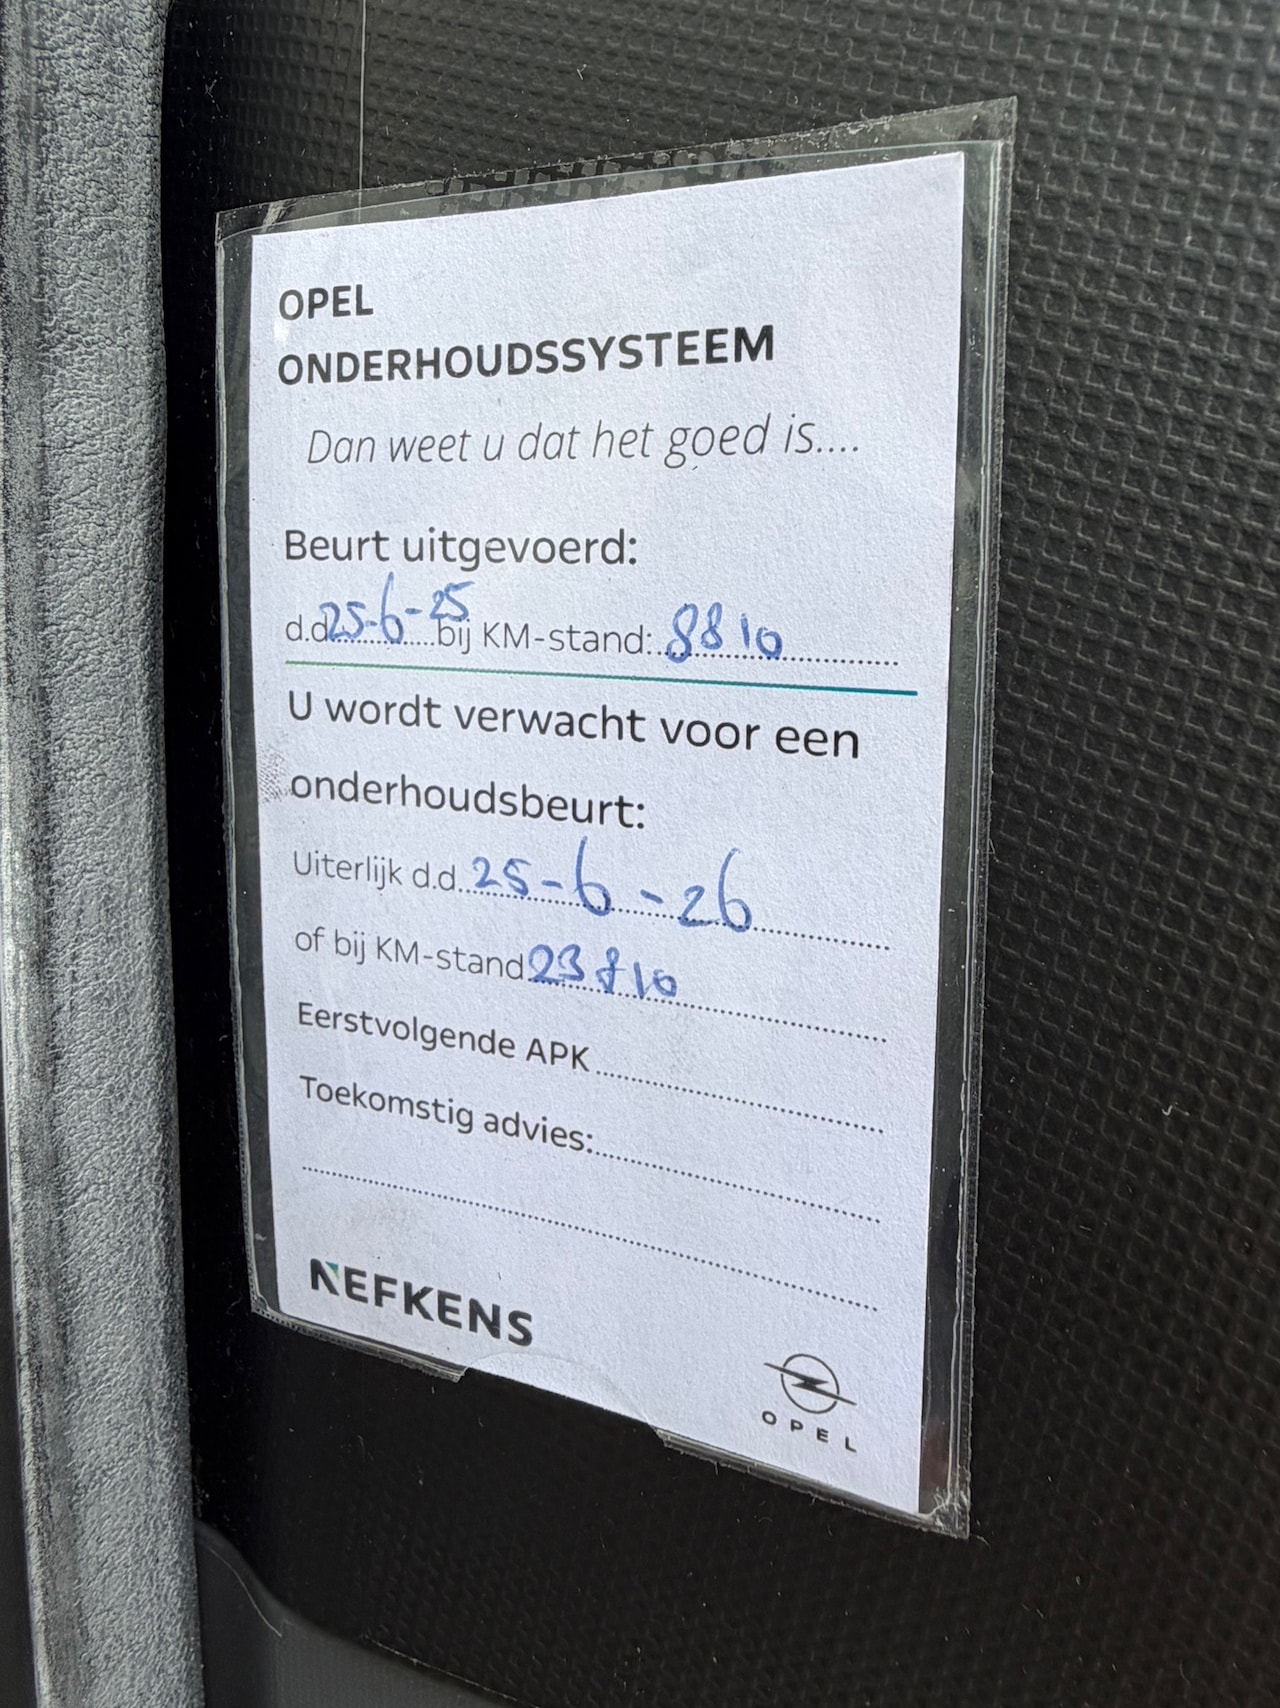 OPEL
ONDERHOUDSSYSTEEM
Dan weet u dat het goed is....
Beurt uitgevoerd:
d.d. 25-6-25 bij KM-stand: 8810
U wordt verwacht voor een
onderhoudsbeurt:
Uiterlijk d.d. 25-6-26
of bij KM-stand 23810
Eerstvolgende APK
Toekomstig advies:
NEFKENS
OPEL